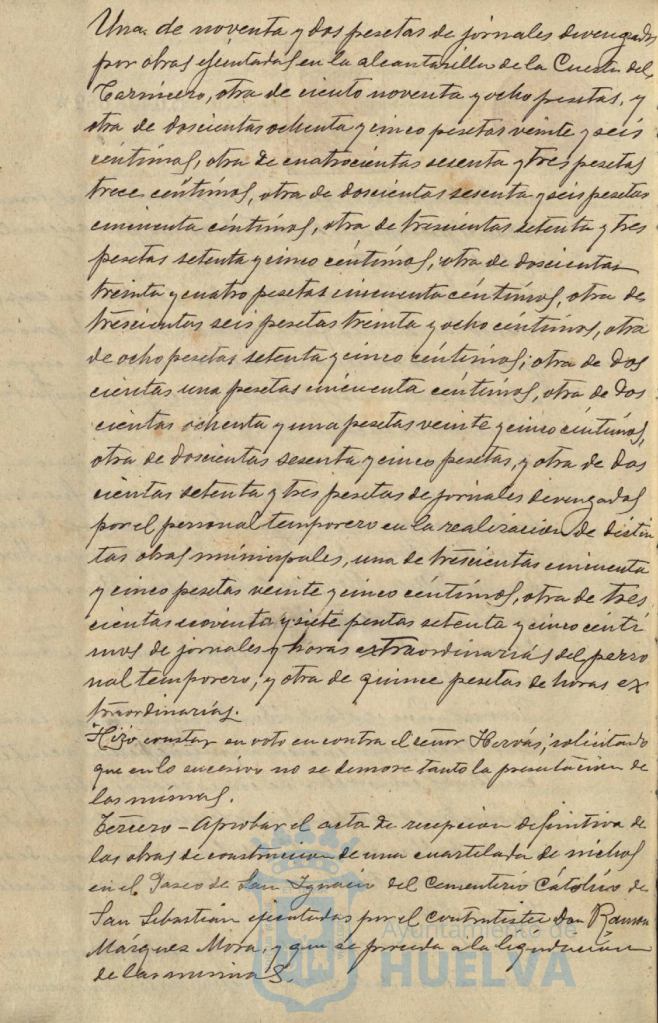 Una de noventa y dos pesetas de jornales devengados
por obras ejecutadas en la alcantarilla de la Cuesta del
Carnicero, otra de ciento noventa y ocho pesetas, y
otra de doscientas ochenta y cinco pesetas veinte y seis
céntimos, otra de cuatrocientas sesenta y tres pesetas
trece céntimos, otra de doscientas sesenta y seis pesetas
cincuenta céntimos, otra de trescientas setenta y tres
pesetas setenta y cinco céntimos, otra de doscientas
treinta y cuatro pesetas cincuenta céntimos, otra de
trescientas seis pesetas treinta y ocho céntimos, otra
de ocho pesetas setenta y cinco céntimos; otra de dos
cientas una pesetas cincuenta céntimos, otra de dos
cientas ochenta y una pesetas veinte y cinco céntimos,
otra de doscientas sesenta y cinco pesetas, y otra de dos
cientas setenta y tres pesetas de jornales devengados
por el personal temporero en la realización de distin
tas obras municipales, una de trescientas cincuenta
y cinco pesetas veinte y cinco céntimos, otra de tres
cientas noventa y siete pesetas setenta y cinco cénti
mos de jornales y horas extraordinarias del perso
nal temporero, y otra de quince pesetas de horas ex
traordinarias.
Hizo constar su voto en contra el señor Hervás, solicitado
que en lo sucesivo no se demore tanto la presentación de
las mismas.
Tercero - Aprobar el acta de recepción definitiva de
las obras de construcción de una cuartelada de nichos
en el Paseo de San Ignacio del Cementerio Católico de
San Sebastián ejecutadas por el contratista Don Ramón
Márquez Mora, y que se proceda a la liquidación
de las mismas.
Ayuntamiento de
HUELVA